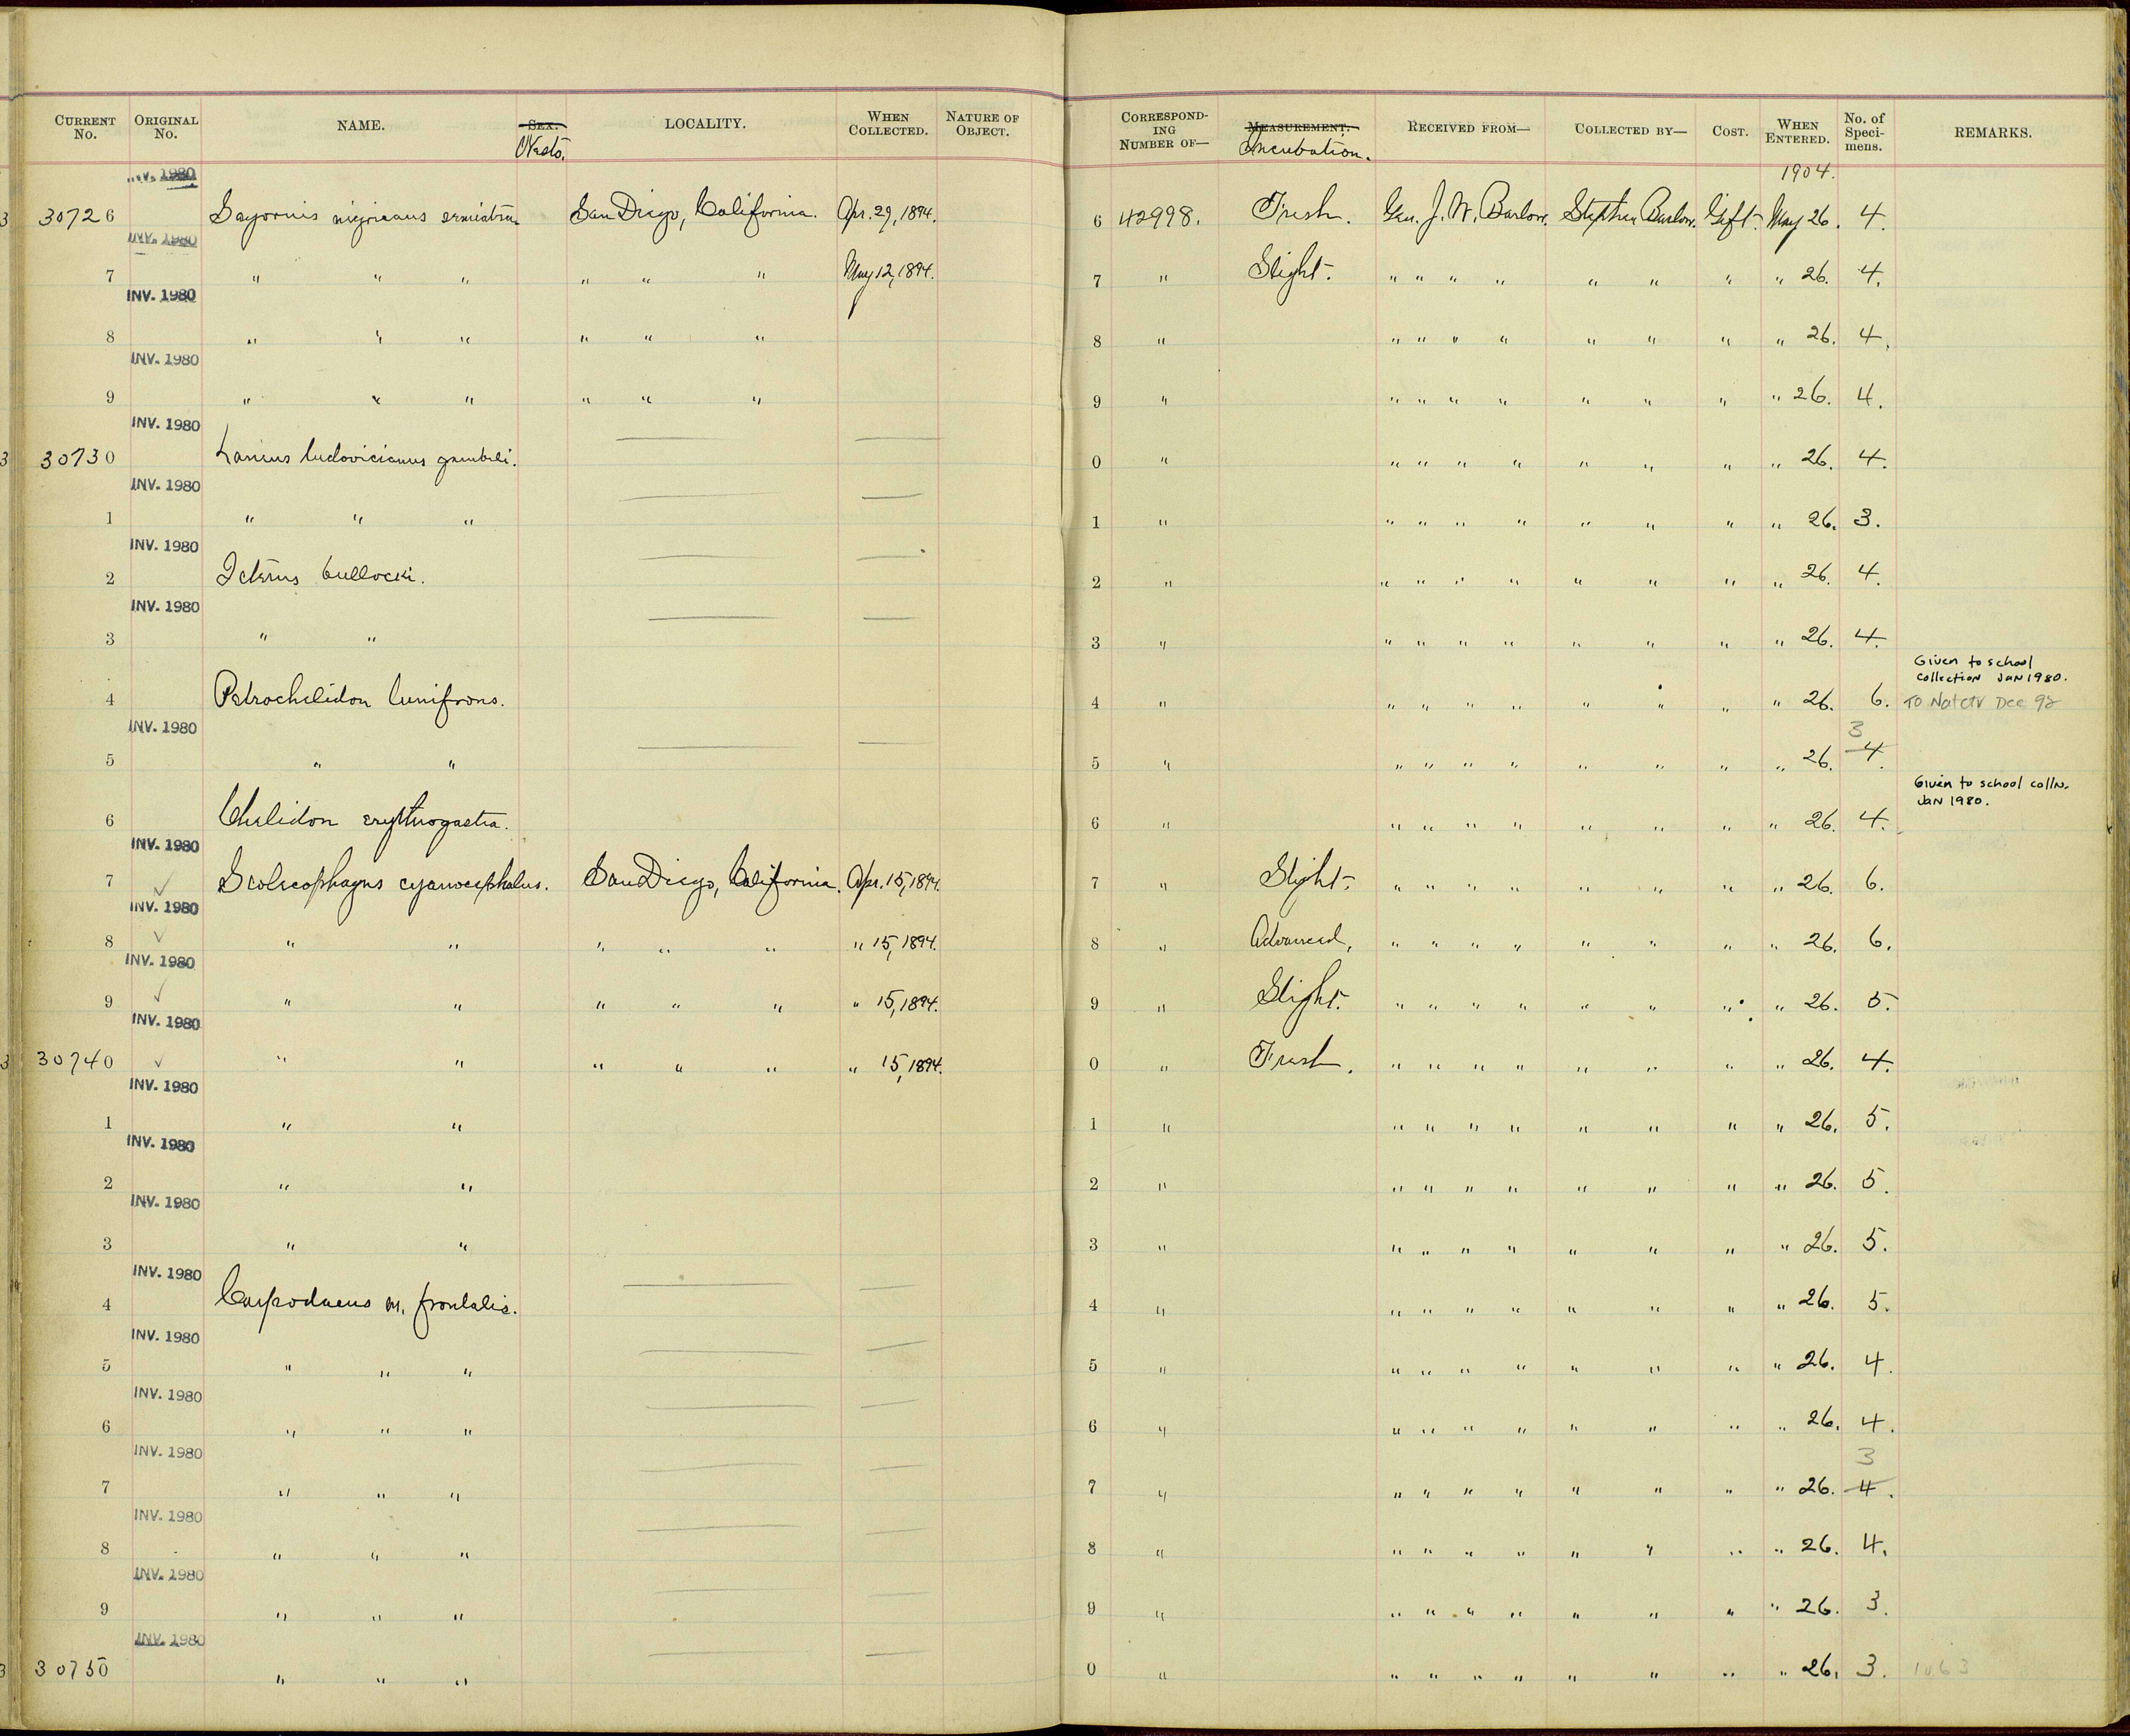 CURRENT No. ORIGINAL No. NAME. SEX. Nests. LOCALITY. WHEN COLLECTED. NATURE OF OBJECT. CORRESPONDING NUMBER OF— MEASUREMENT. Incubation. RECEIVED FROM— COLLECTED BY— COST. WHEN ENTERED. No. of Specimens. REMARKS.
INV. 1980 1904.
30726 Sayornis nigricans semiatra San Diego, California. Apr. 29, 1894. 6 42998. Fresh. Gen. J. W. Barlow. Stephen Barlow. Gift. May 26. 4.
INV. 1980
7 " " " " " " May 12, 1894. 7 " Slight. " " " " " " " " 26. 4.
INV. 1980
8 " " " " " " 8 " " " " " " " " " 26. 4.
INV. 1980
9 " " " " " " 9 " " " " " " " " " 26. 4.
INV. 1980
30730 Lanius ludovicianus gambeli. 0 " " " " " " " " " 26. 4.
INV. 1980
1 " " " 1 " " " " " " " " " 26. 3.
INV. 1980
2 Icterus bullocki. 2 " " " " " " " " " 26. 4.
INV. 1980
3 " " 3 " " " " " " " " " 26. 4.
Given to school
collection JAN 1980.
4 Petrochelidon lunifrons. 4 " " " " " " " " " 26. 6. To Natctr Dec 92
INV. 1980 3
5 " " 5 " " " " " " " " " 26. 4.
Given to school colln.
JAN 1980.
6 Chelidon erythrogastra. 6 " " " " " " " " " 26. 4.
INV. 1980
7 ✓ Scolecophagus cyanocephalus. San Diego, California. Apr. 15, 1894. 7 " Slight. " " " " " " " " 26. 6.
INV. 1980
8 ✓ " " " " " " 15, 1894. 8 " Advanced. " " " " " " " " 26. 6.
INV. 1980
9 ✓ " " " " " " 15, 1894. 9 " Slight. " " " " " " " " 26. 5.
INV. 1980
30740 ✓ " " " " " " 15, 1894. 0 " Fresh. " " " " " " " " 26. 4.
INV. 1980
1 " " 1 " " " " " " " " " 26. 5.
INV. 1980
2 " " 2 " " " " " " " " " 26. 5.
INV. 1980
3 " " 3 " " " " " " " " " 26. 5.
INV. 1980
4 Carpodacus m. frontalis. 4 " " " " " " " " " 26. 5.
INV. 1980
5 " " " 5 " " " " " " " " " 26. 4.
INV. 1980
6 " " " 6 " " " " " " " " " 26. 4.
INV. 1980 3
7 " " " 7 " " " " " " " " " 26. 4.
INV. 1980
8 " " " 8 " " " " " " " " " 26. 4.
INV. 1980
9 " " " 9 " " " " " " " " " 26. 3.
INV. 1980
30750 " " " 0 " " " " " " " " " 26. 3.